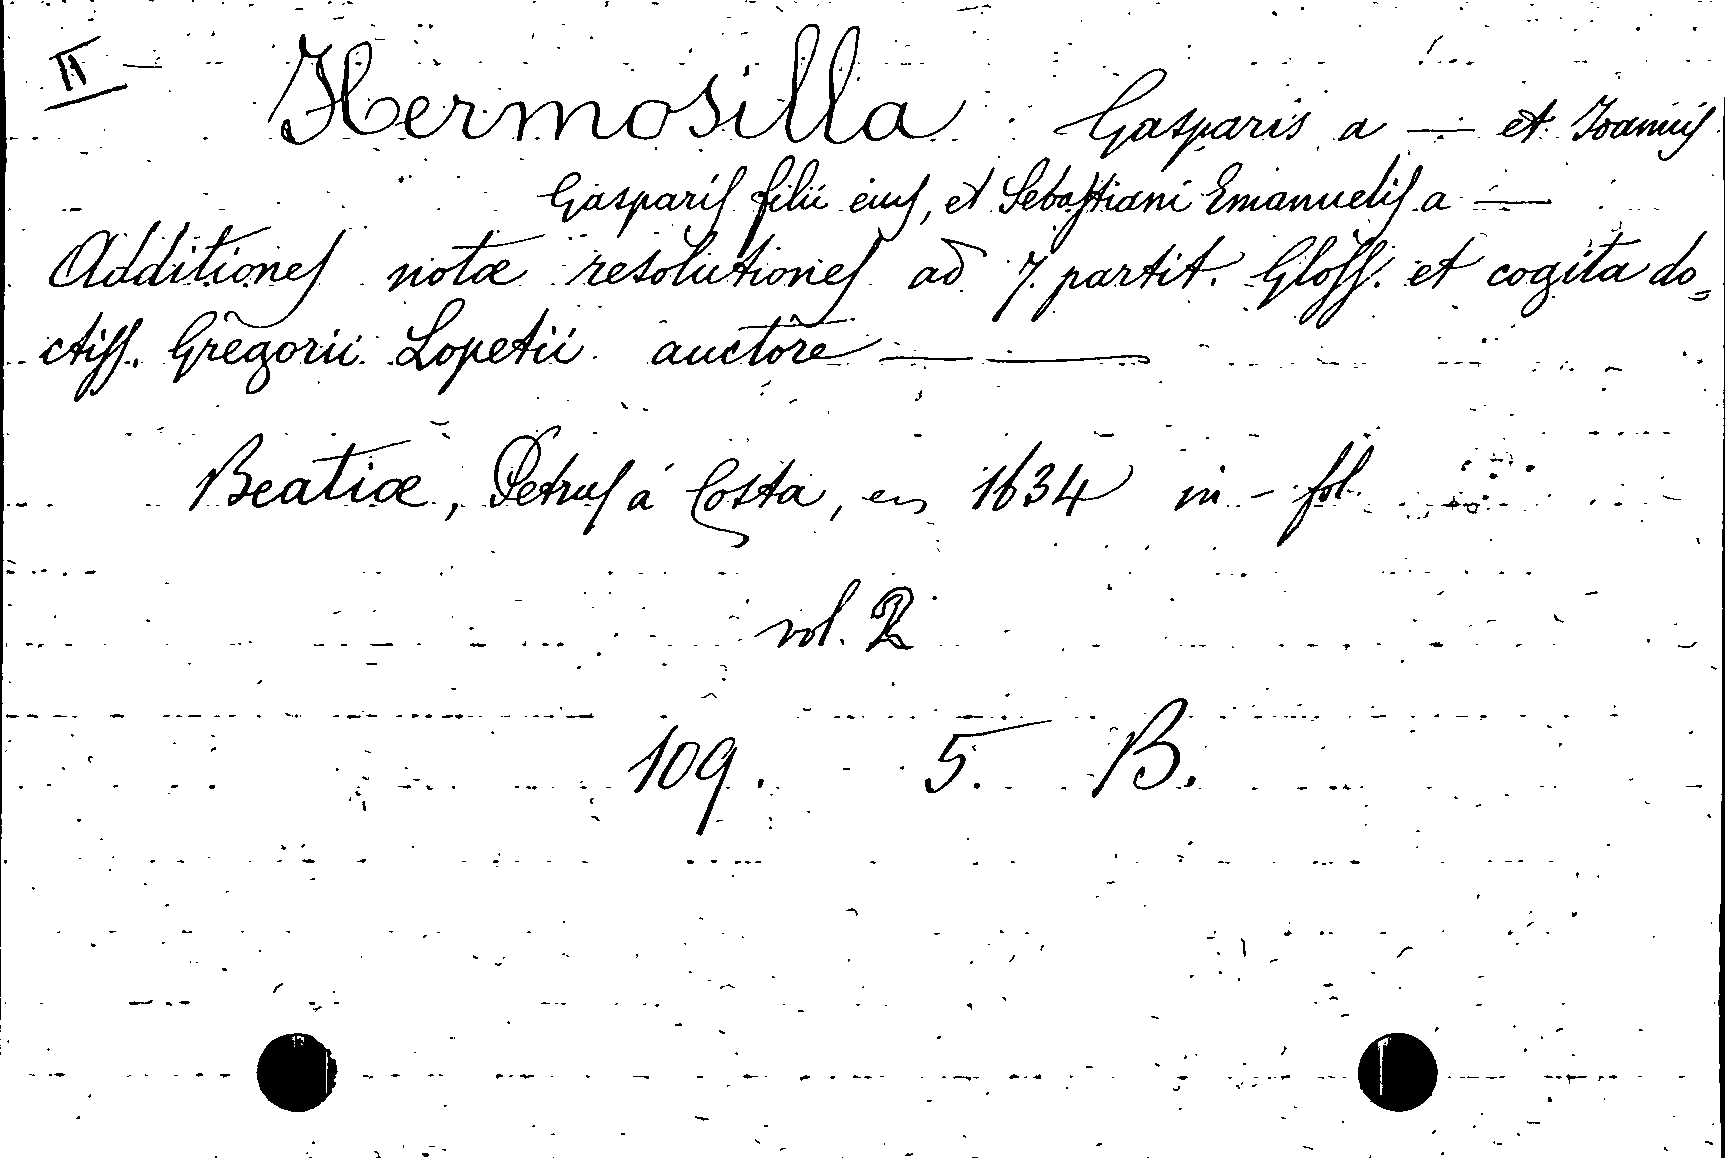 II Hermosilla Gasparis a — et Joannis
Gasparis filii eius, et Sebastiani Emanuelis a —
Additiones notæ resolutiones ad 7. partit. Gloss. et cogita do=
ctiss. Gregorii Lopetii auctore —
Beatiæ, Petrus á Costa, en 1634 in-fol.
vol. 2
109. 5. B.